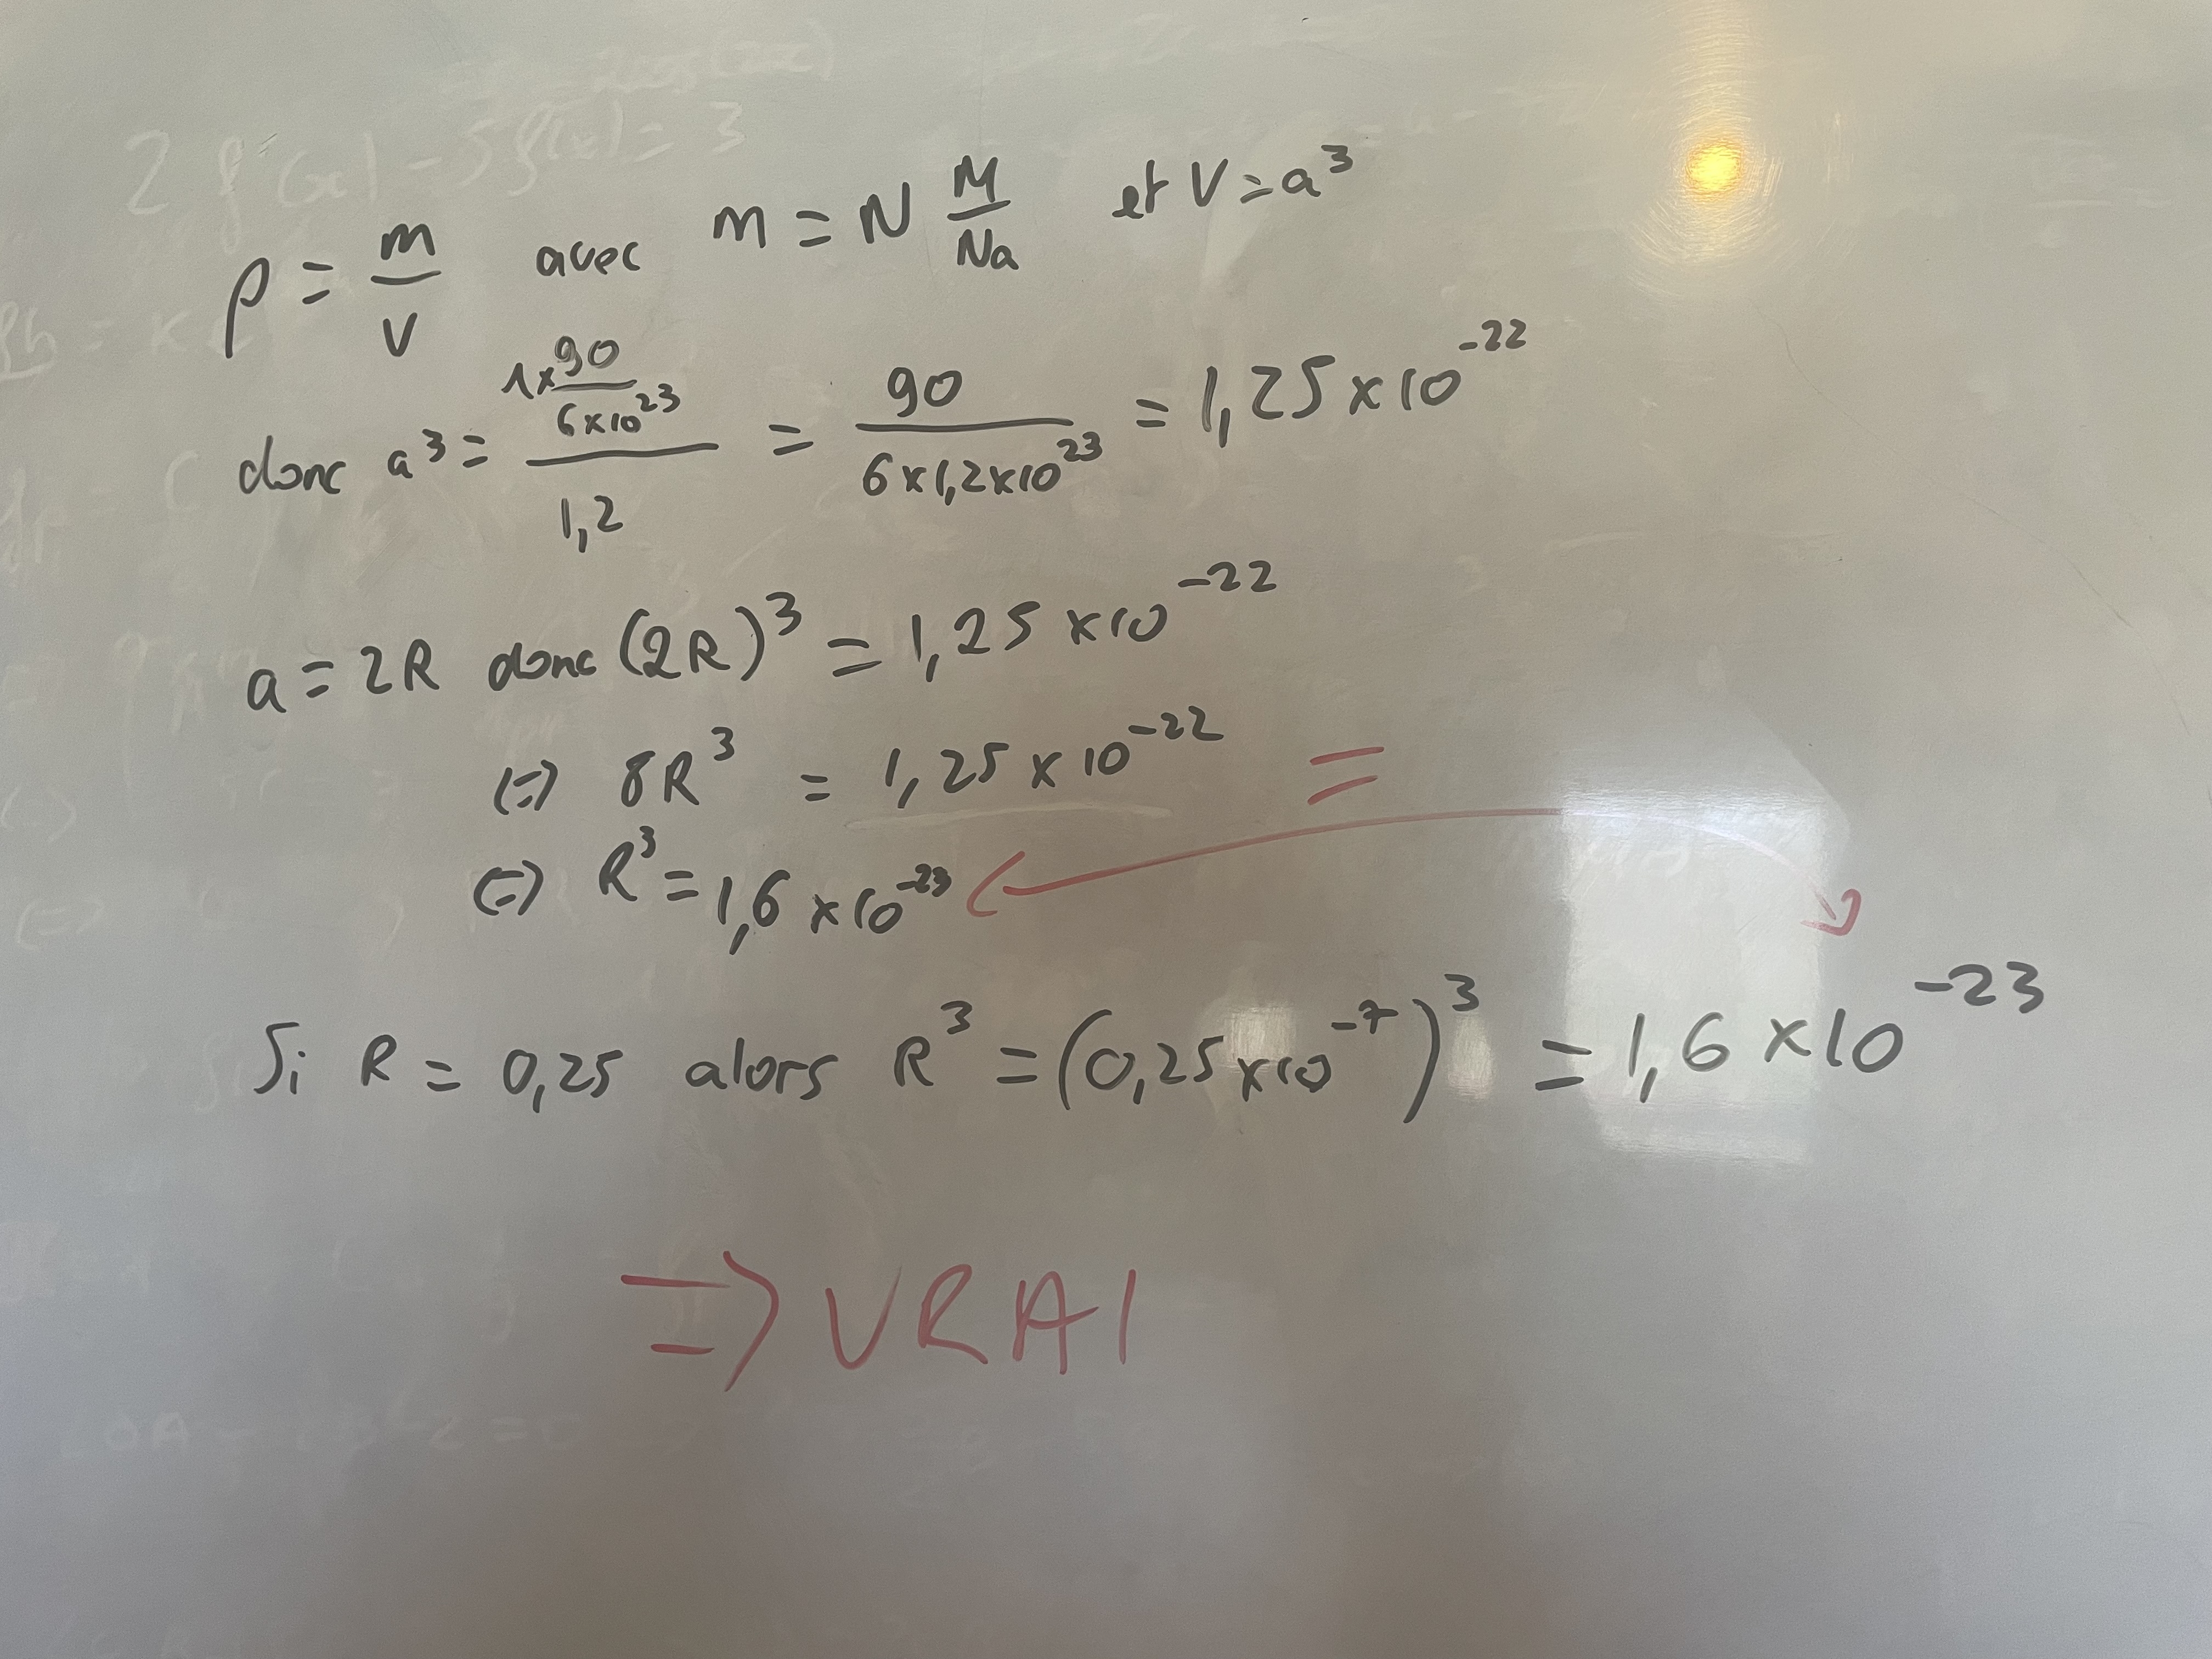 2 f'(x) - 5f(x) = 3
ρ = m/V avec m = N M/Na et V = a³
donc a³ = (1×90/(6×10²³))/1,2 = 90/(6×1,2×10²³) = 1,25 × 10⁻²²
a = 2R donc (2R)³ = 1,25 × 10⁻²²
(=) 8R³ = 1,25 × 10⁻²² =
(=) R³ = 1,6 × 10⁻²³
Si R = 0,25 alors R³ = (0,25×10⁻⁷)³ = 1,6 × 10⁻²³
=> VRAI